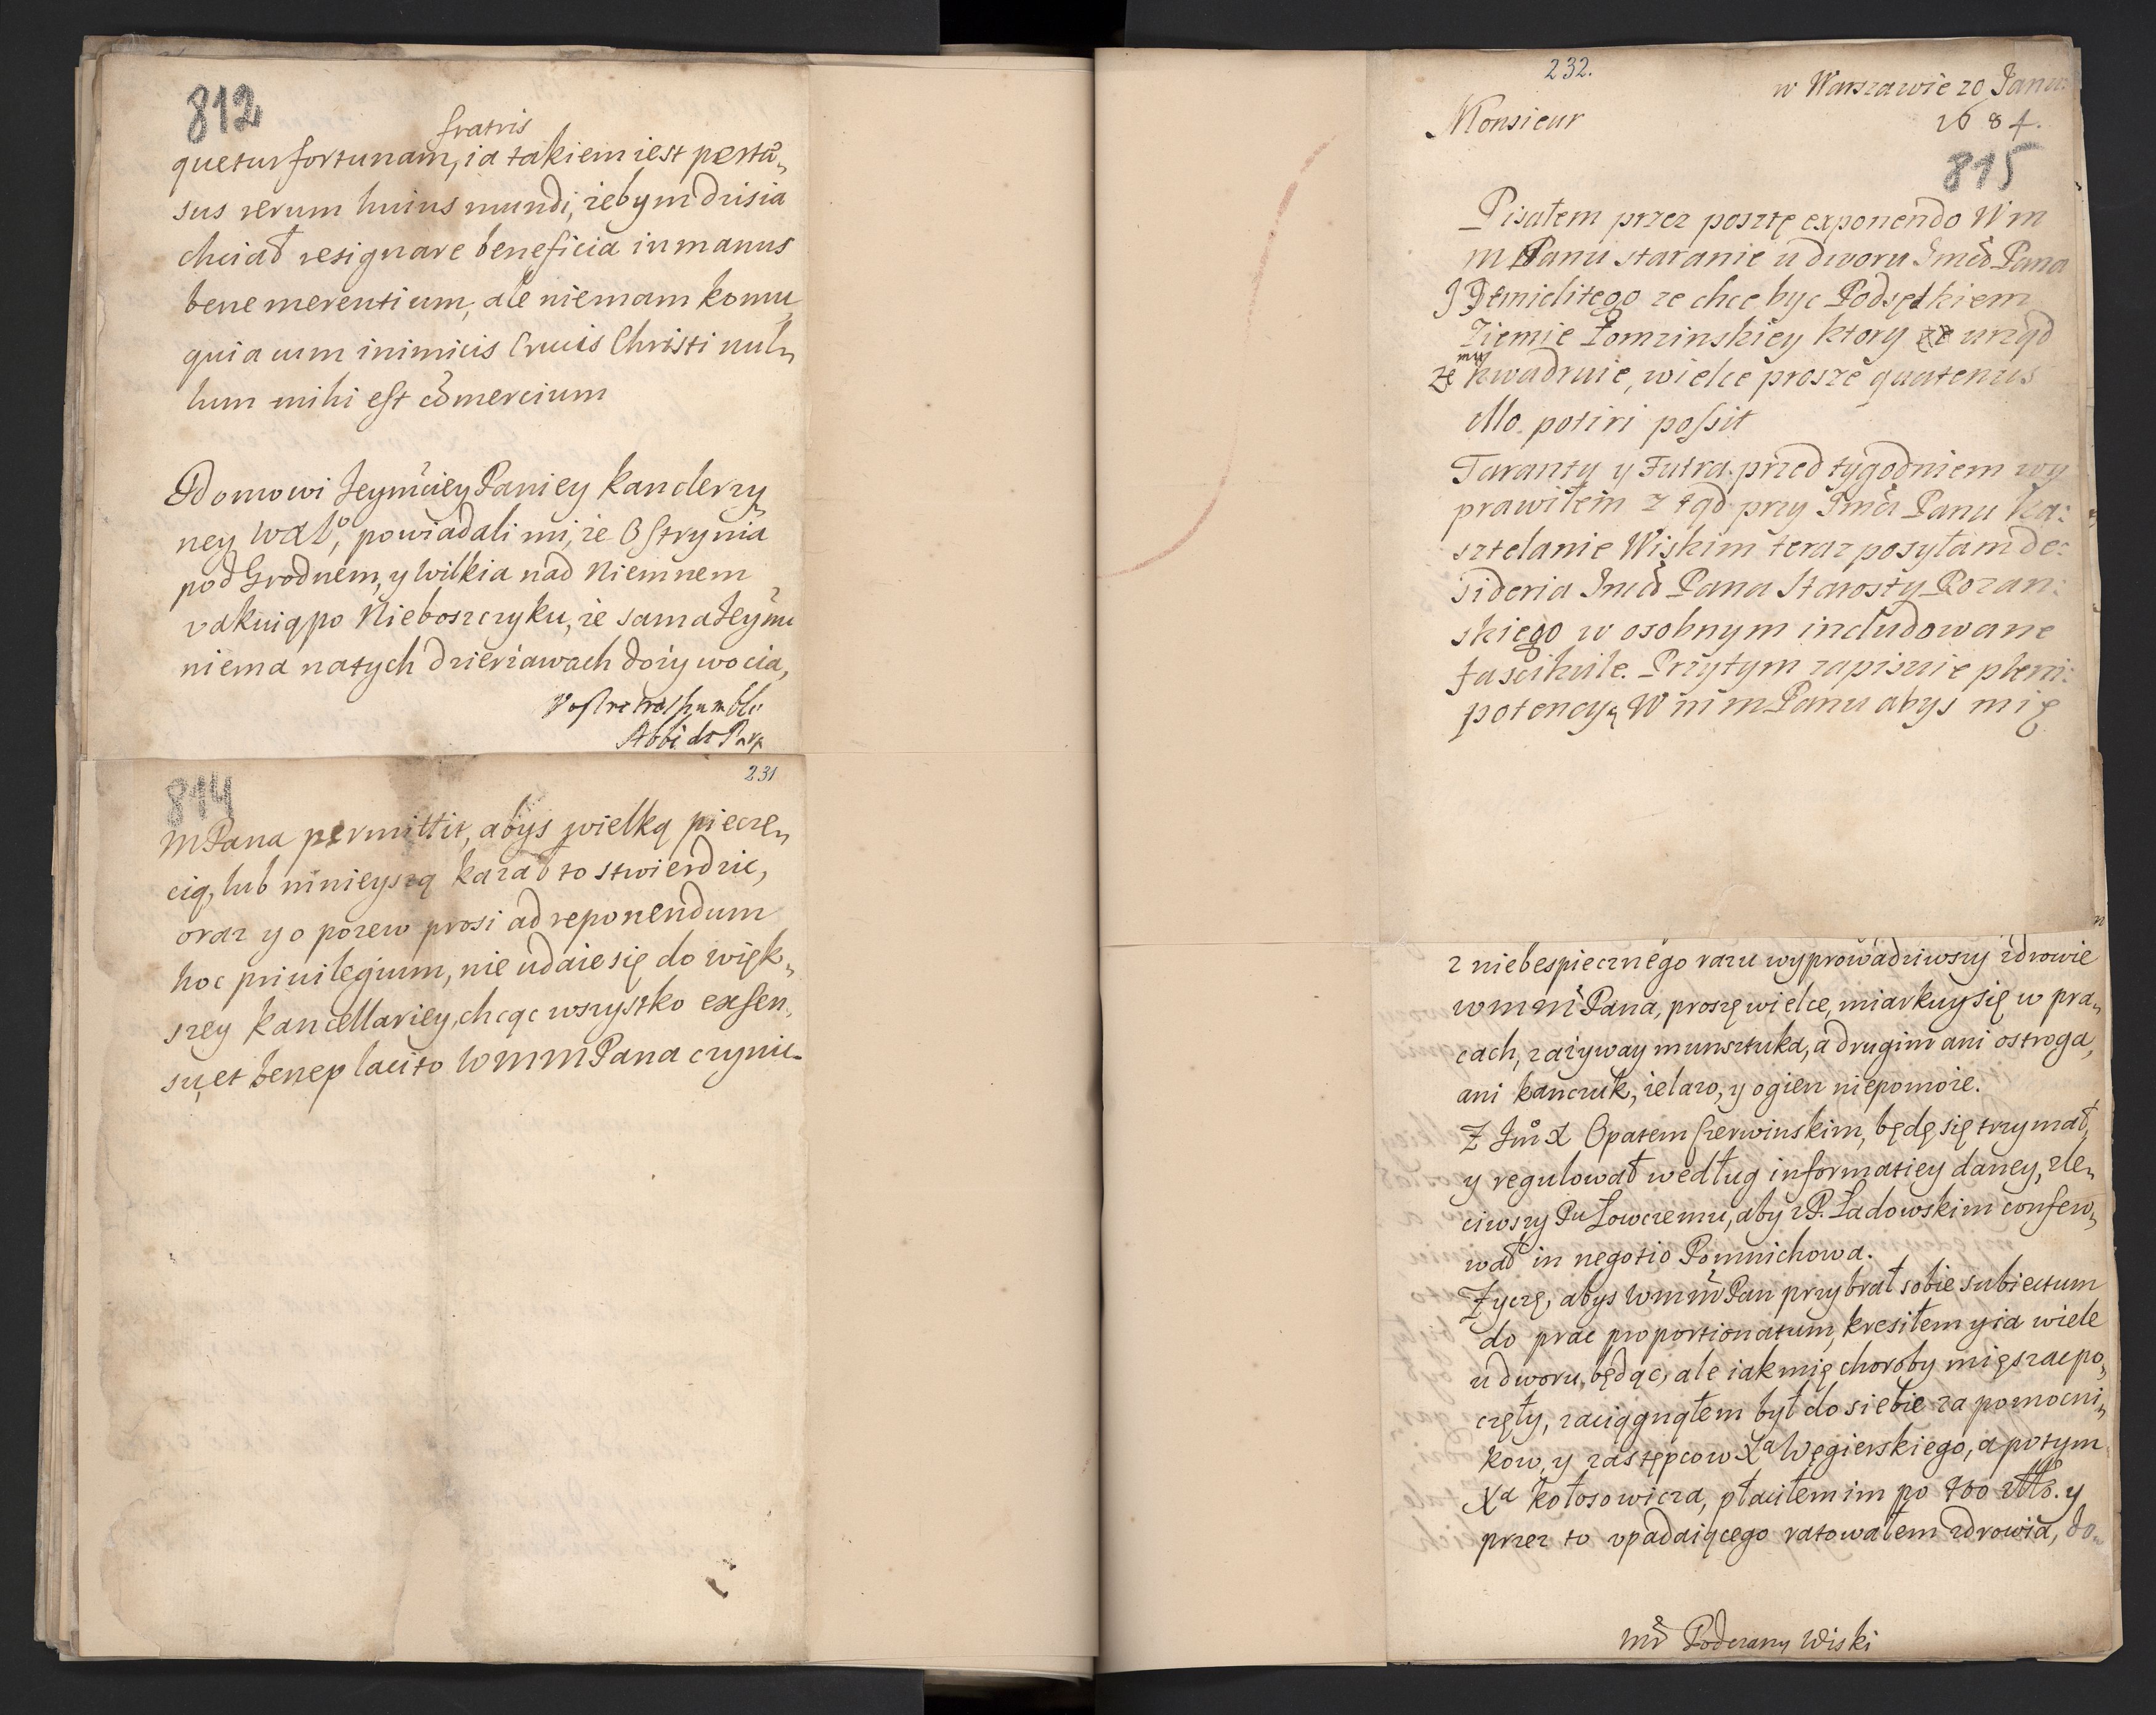 812
fratris
quetur fortunam, ia takiem iest pertæ„
sus rerum huius mundi, zebym dzisia
chciał resignare beneficia in manus
bene merentium, ale niemam komu,
quia cum inimicis Crucis Christi nul„
lum mihi est cõmercium
Domowi Jeymciey Paniey Kanclerzy„
ney WXLº, powiadali mi, że Ostrynia
pod Grodnem, y Wilkia nad Niemnem
vakuią po Nieboszczyku, że sama Jeymć
niema natych dzierżawach dożywocia,
Vostre tres humble
Abbé de
814
231
MPana permittit, abys wielką pieczę„
cią, lub mnieyszą kazał to stwierdzic,
oraz y o pozew prosi ad reponendum
hoc priuilegium, nie udaie się do więk„
szey kancellariey, chcąc wszystko ex sen„
su, et beneplacito WMMPana czynic.
232.
w Warszawie 20 Janu:
1684.
Monsieur
815
Pisałem przez posztę exponendo Wm
m Panu staranie u dworu Jmći Pana
J Smielitego ze chce byc Podsętkiem
Ziemie Łomzinskiey ktory ze urząd
mu
że kwadruie, wielce prosze quatenus
illo potiri possit
Taranty y Futra przed tygodniem wy
prawiłem z tąd przy Jmći Panu Ka:
sztelanie Wiskim teraz posyłam de:
sideria Jmći Pana Starosty Rozan:
skiego w osobnym includowane
fascikule. Przytym zapisuie pleni:
potencyą W m m Panu abys mię
z niebespiecznego razu wyprowadziwszy zdrowie
wmmPana, proszę wielce, miarkuy się w pra„
cach, zażyway munsztuka, a drugim ani ostroga,
ani kanczuk, żelazo, y ogien niepomoże.
Z Jm X Opatem Czerwinskim, będę się trzymał,
y regulował według informatiey daney, zle„
ciwszy Pu Łowczemu, aby z P. Ładowskim confero„
wał in negotio Pomnichowa.
Życzę, abys WmmPan przybrał sobie subiectum
do prac proportionatum, kresiłem y ia wiele
u dworu będąc, ale iak mię choroby mięszac po„
częły, zaciągnąłem był do siebie za pomocni„
kow, y zastępcow Xa Węgierskiego, a potym
Xa Kołosowicza, płaciłem im po 400 y
przez to vpadaiącego ratowałem zdrowia, do„
Podczaszy Wiski